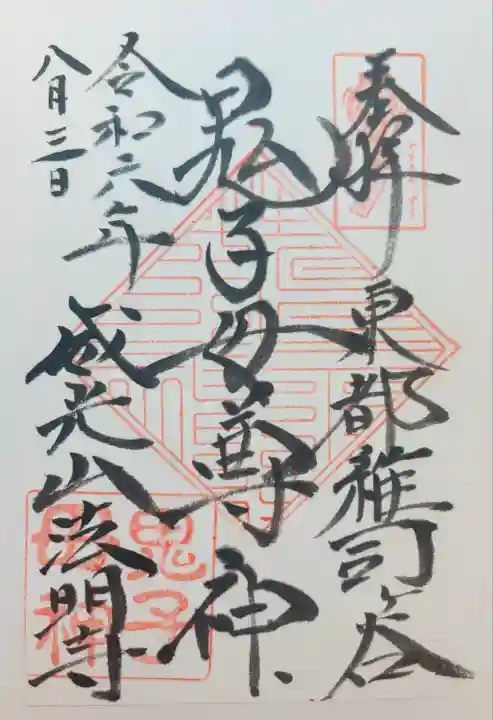 奉拝
東都雑司ヶ谷
鬼子母尊神
令和六年
八月三日
威光山法明寺